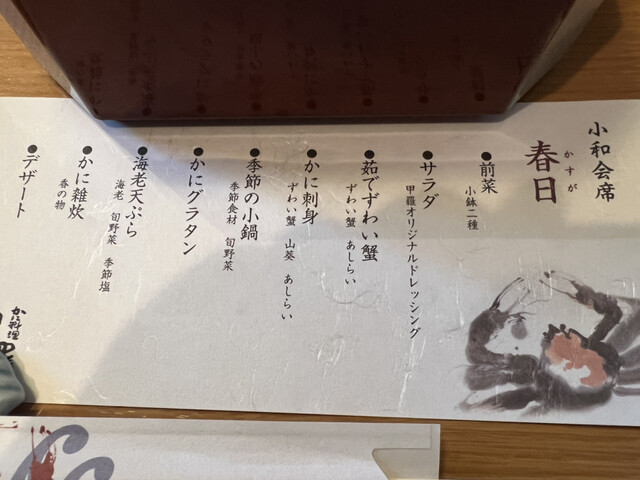 小和会席
春日
かすが
●前菜
小鉢二種
●サラダ
甲羅オリジナルドレッシング
●茹でずわい蟹
ずわい蟹 あしらい
●かに刺身
ずわい蟹 山葵 あしらい
●季節の小鍋
季節食材 旬野菜
●かにグラタン
●海老天ぷら
海老 旬野菜 季節塩
●かに雑炊
香の物
●デザート
かに料理